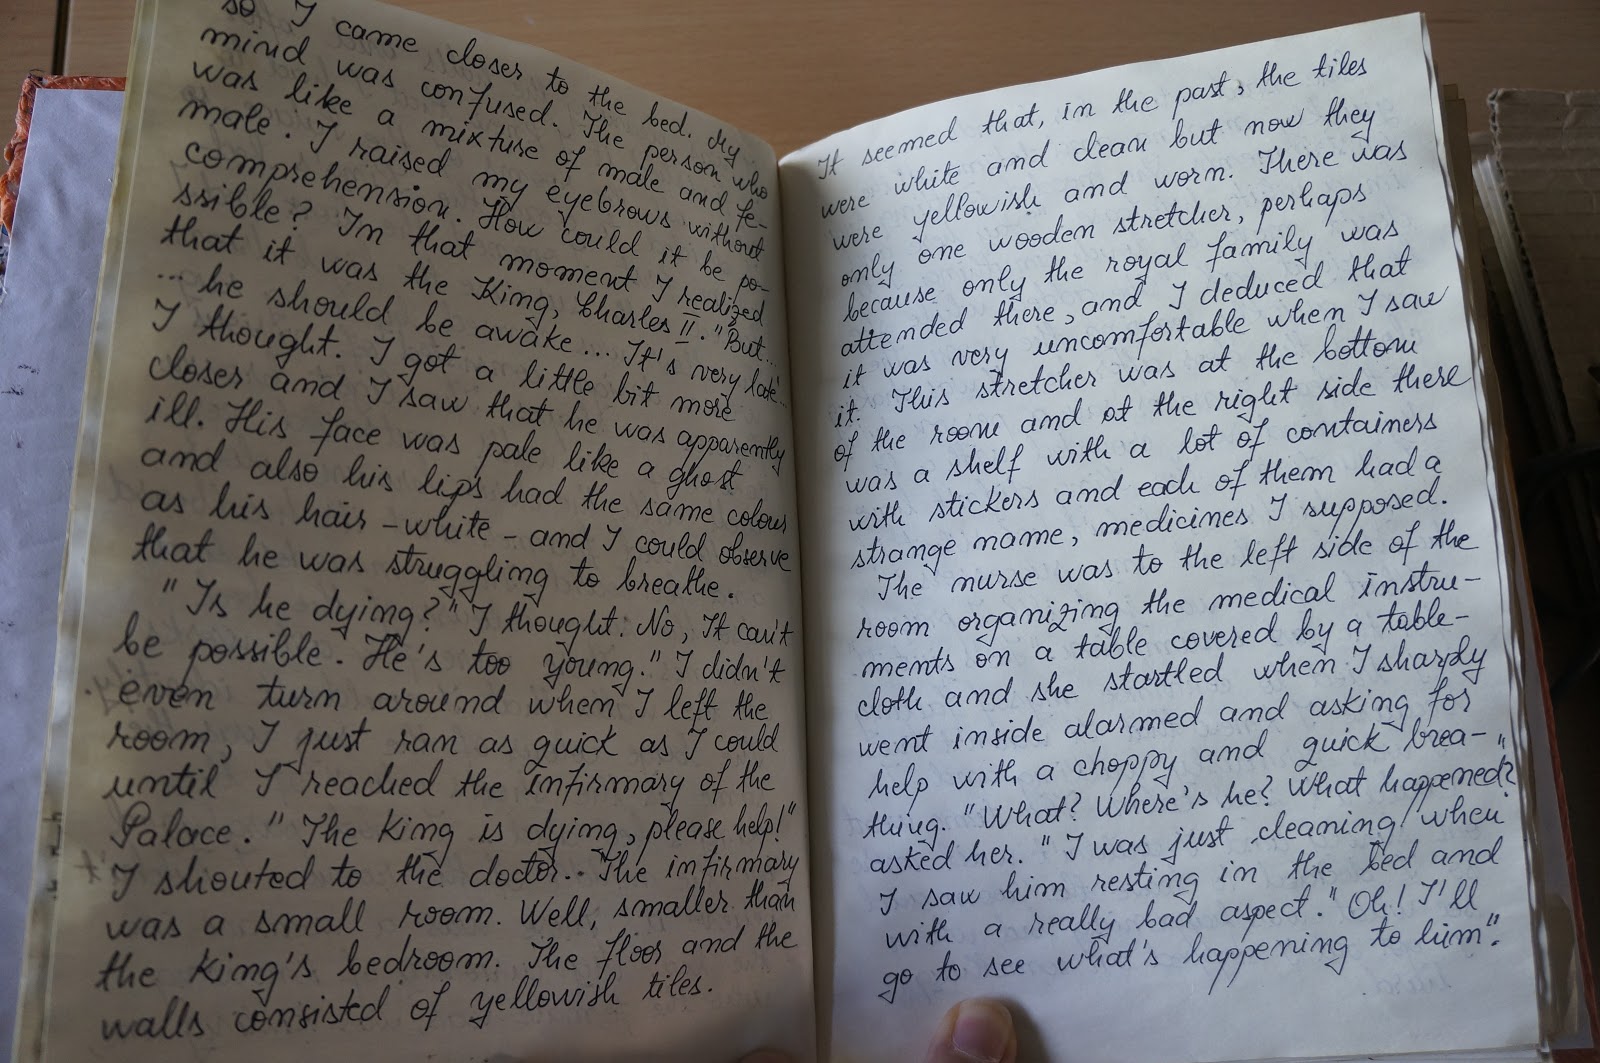 so I came closer to the bed. My
mind was confused. The person who
was like a mixture of male and fe-
male. I raised my eyebrows without
comprehension. How could it be po-
ssible? In that moment I realized
that it was the King, Charles II. "But...
... he should be awake... It's very late"...
I thought. I got a little bit more
closer and I saw that he was apparently
ill. His face was pale like a ghost
and also his lips had the same colour
as his hair - white - and I could observe
that he was struggling to breathe.
"Is he dying?" I thought. No, It can't
be possible. He's too young." I didn't
even turn around when I left the
room, I just ran as quick as I could
until I reached the infirmary of the
Palace. "The King is dying, please help!"
I shouted to the doctor.. The infirmary
was a small room. Well, smaller than
the King's bedroom. The floor and the
walls consisted of yellowish tiles.
It seemed that, in the past, the tiles
were white and clean but now they
were yellowish and worn. There was
only one wooden stretcher, perhaps
because only the royal family was
attended there, and I deduced that
it was very uncomfortable when I saw
it. This stretcher was at the bottom
of the room and at the right side there
was a shelf with a lot of containers
with stickers and each of them had a
strange name, medicines I supposed.
The nurse was to the left side of the
room organizing the medical instru-
ments on a table covered by a table-
cloth and she startled when I sharply
went inside alarmed and asking for
help with a choppy and quick brea-
thing. "What? Where's he? What happened?"
asked her. "I was just cleaning when
I saw him resting in the bed and
with a really bad aspect." Oh! I'll
go to see what's happening to him".